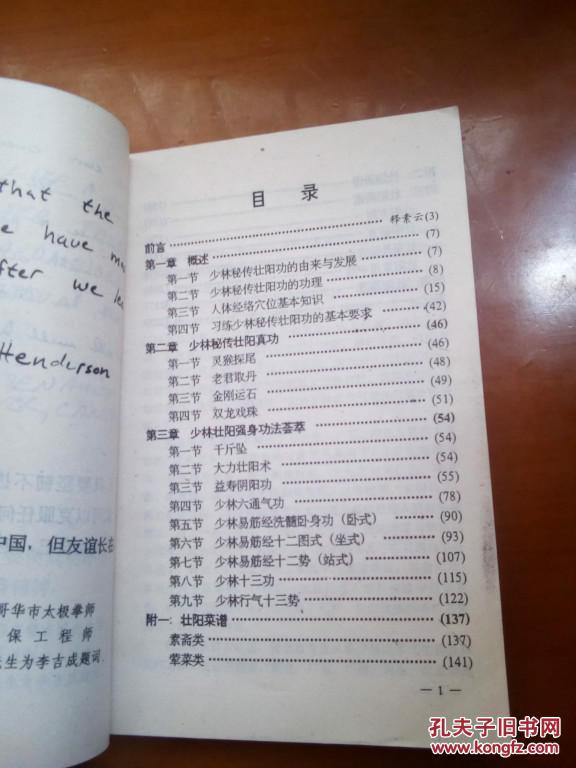 that the
e have m
fter we le
Henderson
中国，但友谊长在
哥华市太极拳师
保工程师
先生为李古成题词
目 录
前言 ………………………… 释素云(3)
第一章 概述 ………………………… (7)
第一节 少林秘传壮阳功的由来与发展 ………………………… (7)
第二节 少林秘传壮阳功的功理 ………………………… (8)
第三节 人体经络穴位基本知识 ………………………… (15)
第四节 习练少林秘传壮阳功的基本要求 ………………………… (42)
第二章 少林秘传壮阳真功 ………………………… (46)
第一节 灵猴探尾 ………………………… (46)
第二节 老君取丹 ………………………… (48)
第三节 金刚运石 ………………………… (49)
第四节 双龙戏珠 ………………………… (51)
第三章 少林壮阳强身功法荟萃 ………………………… (54)
第一节 千斤坠 ………………………… (54)
第二节 大力壮阳术 ………………………… (54)
第三节 益寿阴阳功 ………………………… (55)
第四节 少林六通气功 ………………………… (78)
第五节 少林易筋经洗髓卧身功（卧式） ………………………… (90)
第六节 少林易筋经十二图式（坐式） ………………………… (93)
第七节 少林易筋经十二势（站式） ………………………… (107)
第八节 少林十三功 ………………………… (115)
第九节 少林行气十三势 ………………………… (122)
附一：壮阳菜谱 ………………………… (137)
素斋类 ………………………… (137)
荤菜类 ………………………… (141)
— 1 —
孔夫子旧书网
www.kongfz.com